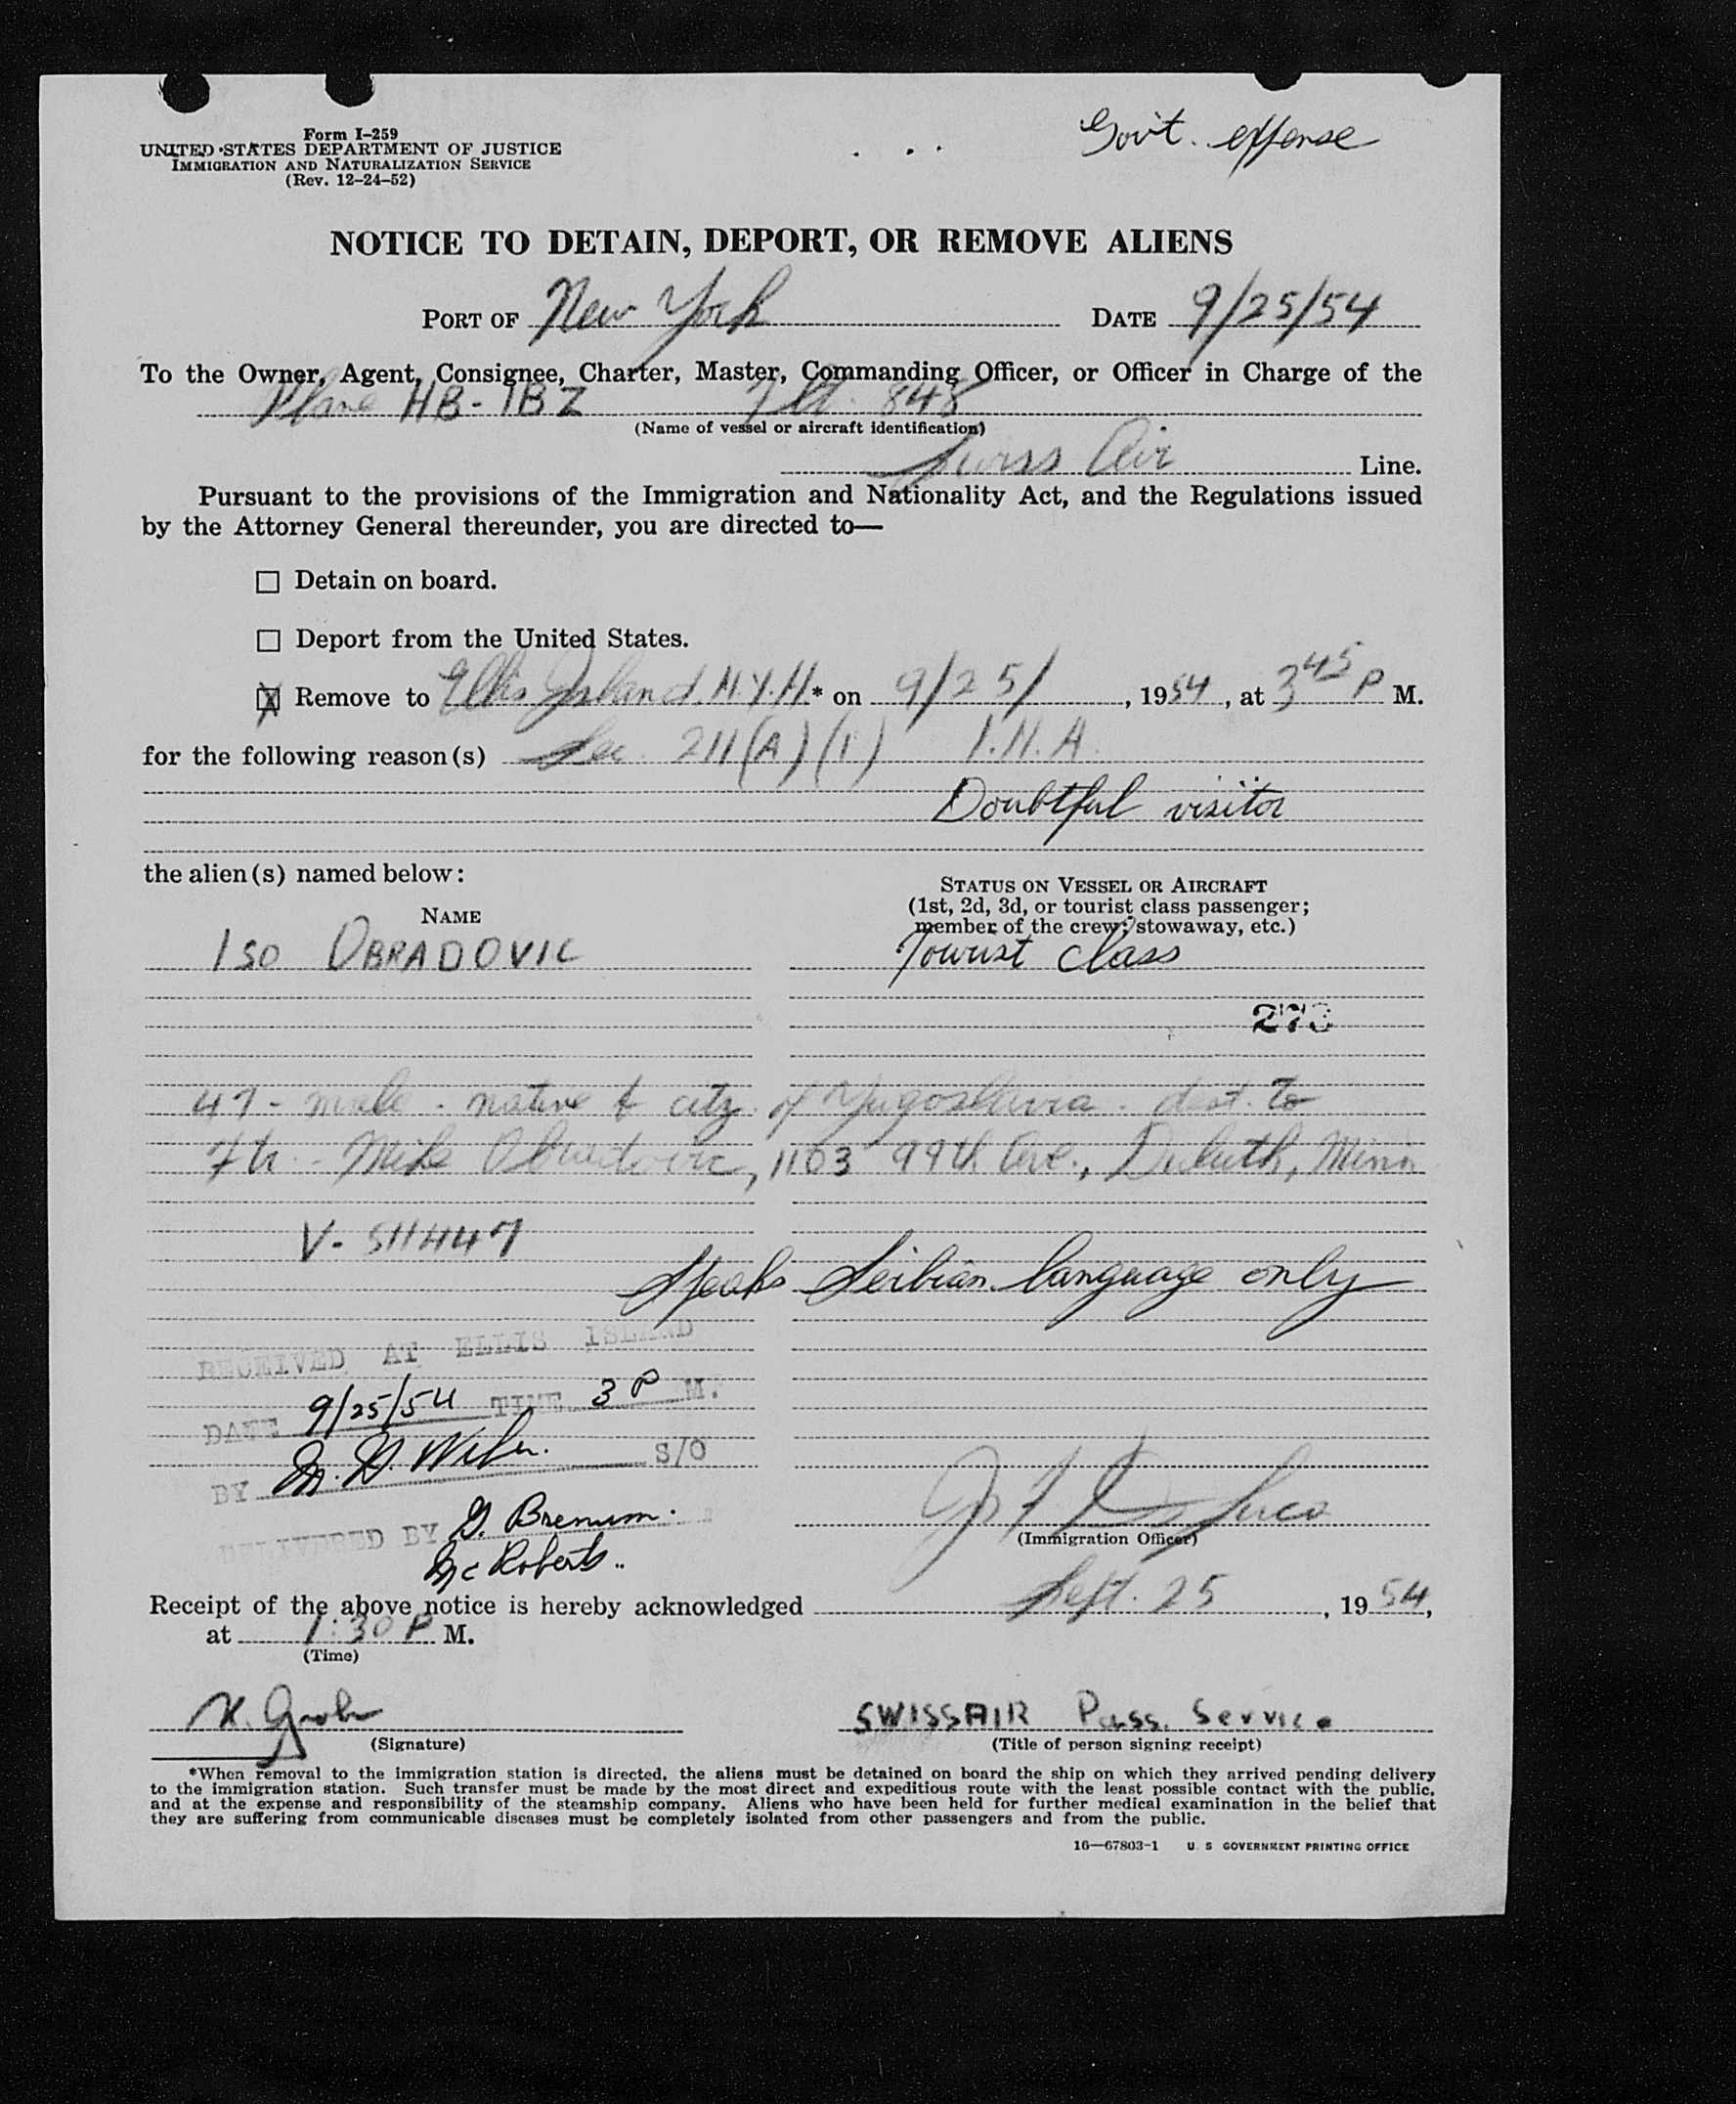 Form I-259
UNITED STATES DEPARTMENT OF JUSTICE
IMMIGRATION AND NATURALIZATION SERVICE
(Rev. 12-24-52)
Gov't.
NOTICE TO DETAIN, DEPORT, OR REMOVE ALIENS
PORT OF New York DATE 9/25/54
To the Owner, Agent, Consignee, Charter, Master, Commanding Officer, or Officer in Charge of the
Plane HB-IBZ Flt. 848
(Name of vessel or aircraft identification)
Swiss Air Line.
Pursuant to the provisions of the Immigration and Nationality Act, and the Regulations issued
by the Attorney General thereunder, you are directed to—
Detain on board.
Deport from the United States.
X Remove to Ellis Island. N.Y.H.* on 9/25/, 1954, at 3 45 P M.
for the following reason(s) Sec. 211(A)(1) I.N.A.
Doubtful visitor
the alien(s) named below:
STATUS ON VESSEL OR AIRCRAFT
(1st, 2d, 3d, or tourist class passenger;
member of the crew; stowaway, etc.)
NAME
ISO OBRADOVIC Tourist class
273
47 - male - native & citz. of Yugoslavia. dest. to
Mike Obradovic, 1103 99th Ave., Duluth, Minn
V- 511447
Speaks Serbian language only
RECEIVED AT ELLIS ISLAND
DATE 9/25/54 TIME 3 P M.
BY S/O
DELIVERED BY G.
Mc Roberts..
(Immigration Officer)
Receipt of the above notice is hereby acknowledged Sept. 25, 1954,
at 1:30 P M.
(Time)
SWISSAIR Pass. Service
(Signature) (Title of person signing receipt)
*When removal to the immigration station is directed, the aliens must be detained on board the ship on which they arrived pending delivery
to the immigration station. Such transfer must be made by the most direct and expeditious route with the least possible contact with the public,
and at the expense and responsibility of the steamship company. Aliens who have been held for further medical examination in the belief that
they are suffering from communicable diseases must be completely isolated from other passengers and from the public.
16—67803-1 U S GOVERNMENT PRINTING OFFICE